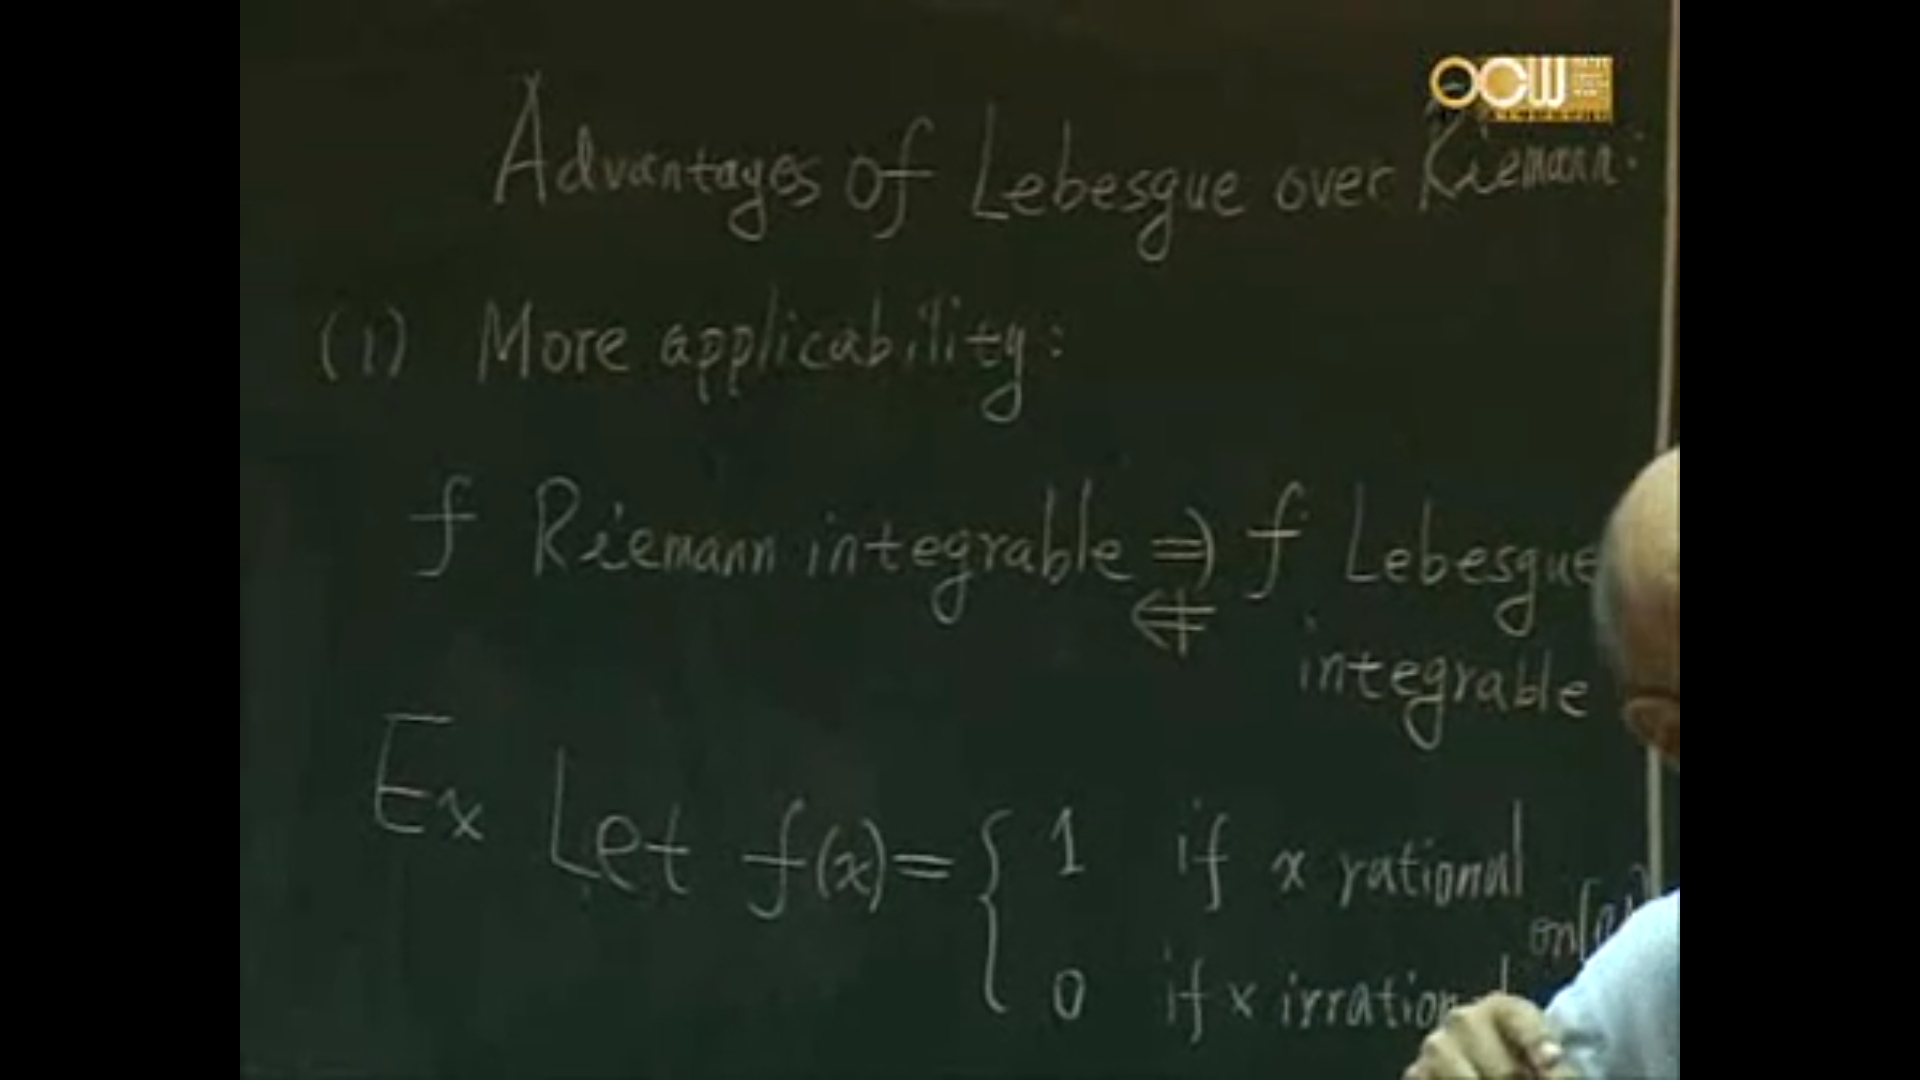 OCW
Advantages of Lebesgue over Riemann:
(1) More applicability:
f Riemann integrable ⇒ f Lebesgue
⇍ integrable
Ex Let f(x) = { 1 if x rational
on
0 if x